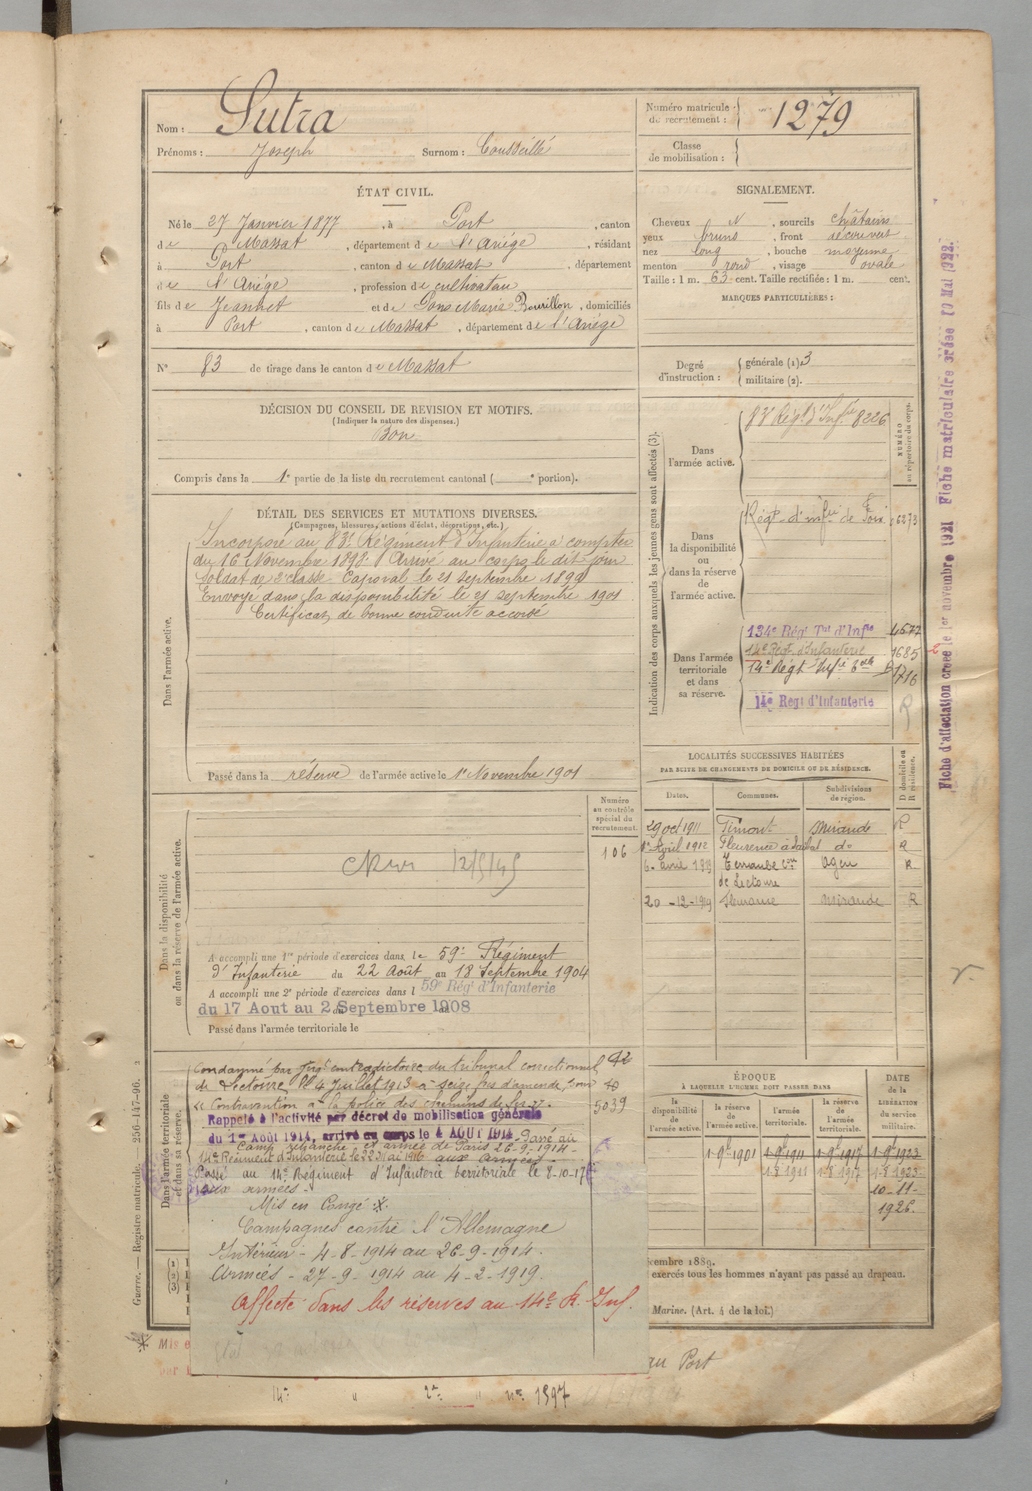 Nom : Sutra
Prénoms : Joseph Surnom : Cousseillé
Numéro matricule du recrutement : 1279
Classe de mobilisation :
ÉTAT CIVIL.
Né le 27 Janvier 1877, à Port, canton
de Massat, département de l'Ariége, résidant
à Port, canton de Massat, département
de l'Ariége, profession de cultivateur
fils de Jeannet et de Pons Marie Bourillon, domiciliés
à Port, canton de Massat, département de l'Ariége
N° 83 de tirage dans le canton de Massat
SIGNALEMENT.
Cheveux N, sourcils châtains
yeux bruns, front recouvert
nez long, bouche moyenne
menton rond, visage ovale
Taille : 1 m. 63 cent. Taille rectifiée : 1 m. cent.
MARQUES PARTICULIÈRES :
Degré d'instruction : générale (1). 3
militaire (2).
DÉCISION DU CONSEIL DE REVISION ET MOTIFS.
(Indiquer la nature des dispenses.)
Bon
Compris dans la 1e partie de la liste du recrutement cantonal ( e portion).
DÉTAIL DES SERVICES ET MUTATIONS DIVERSES.
(Campagnes, blessures, actions d'éclat, décorations, etc.)
Dans l'armée active.
Incorporé au 83e Régiment d'Infanterie à compter
du 16 Novembre 1898. Arrivé au corps le dit jour
Soldat de 2e classe. Caporal le 21 septembre 1899
Envoyé dans la disponibilité le 21 septembre 1901
Certificat de bonne conduite accordé
Passé dans la réserve de l'armée active le 1er Novembre 1901
Indication des corps auxquels les jeunes gens sont affectés (3).
NUMÉRO au répertoire du corps.
Dans l'armée active.
83e Régt d'Infrie 8226
Dans la disponibilité ou dans la réserve de l'armée active.
Régt d'infrie de Foix 6273
Dans l'armée territoriale et dans sa réserve.
134e Régt Tal d'Infie 4577
14e Régt d'Infanterie 1685
14e Régt Infie
1716
14e Régt d'Infanterie R
Fiche d'affectation créée le 1er novembre 1921 Fiche matriculaire créée 10 Mai 1922.
LOCALITÉS SUCCESSIVES HABITÉES
PAR SUITE DE CHANGEMENTS DE DOMICILE OU DE RÉSIDENCE.
Dates. Communes. Subdivisions de région. D domicile ou R résidence.
29 oct 1911 Mirande R
1er Avril 1912 Fleurance do R
6 avril 1913 Terraube con de Lectoure Agen R
20-12-1919 Fleurance Mirande R
Dans la disponibilité ou dans la réserve de l'armée active.
Numéro au contrôle spécial du recrutement.
106
12/5/45
A accompli une 1re période d'exercices dans le 59e Régiment
d'Infanterie du 22 Août au 18 Septembre 1904
A accompli une 2e période d'exercices dans l 59e Régt d'Infanterie
du 17 Aout au 2 Septembre 1908
Passé dans l'armée territoriale le
Dans l'armée territoriale et dans sa réserve.
Condamné par jugt contradictoire du tribunal correctionnel
de Lectoure le 4 Juillet 1913 à seize frs d'amende pour
Contravention à la police des chemins de fer
5039
Rappelé à l'activité par décret de mobilisation générale
du 1er Août 1914, arrivé au corps le 4 AOUT 1914. Passé au
Camp retranché et armée de Paris 26-9-1914
14e Régiment d'Infanterie le 22 Mai 1916 aux armées
Passé au 14e Régiment d'Infanterie territoriale le 8-10-17
aux armées
Mis en Congé
Campagnes contre l'Allemagne
Intérieur - 4-8-1914 au 26-9-1914.
Armées - 27-9-1914 au 4-2-1919.
Affecté dans les réserves au 14e R. Inf.
ÉPOQUE
À LAQUELLE L'HOMME DOIT PASSER DANS
DATE de la LIBÉRATION du service militaire.
la disponibilité de l'armée active. la réserve de l'armée active. l'armée territoriale. la réserve de l'armée territoriale.
1-9-1901 1-9-1911 1-9-1917 1-9-1923
1-8-1911 1-8-1917 1-8-1923
10-11-
1926.
écembre 1889.
exercés tous les hommes n'ayant pas passé au drapeau.
Marine. (Art. 4 de la loi.)
Guerre. — Registre matricule. 256-147-96.
au Port
14e " 2e " no 1597